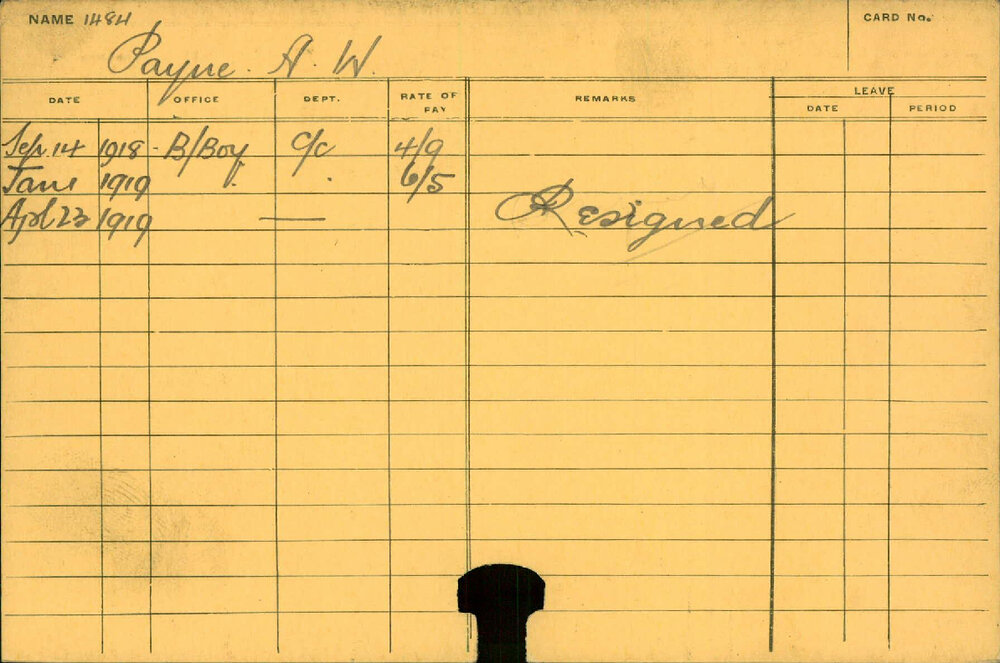 NAME 1484 CARD No.
Payne. A. W.
DATE OFFICE DEPT. RATE OF PAY REMARKS LEAVE
DATE PERIOD
Sep 14 1918 - B/Boy C/C 4/9
Jan 1 1919 " " 6/5
Apl 23 1919 — Resigned